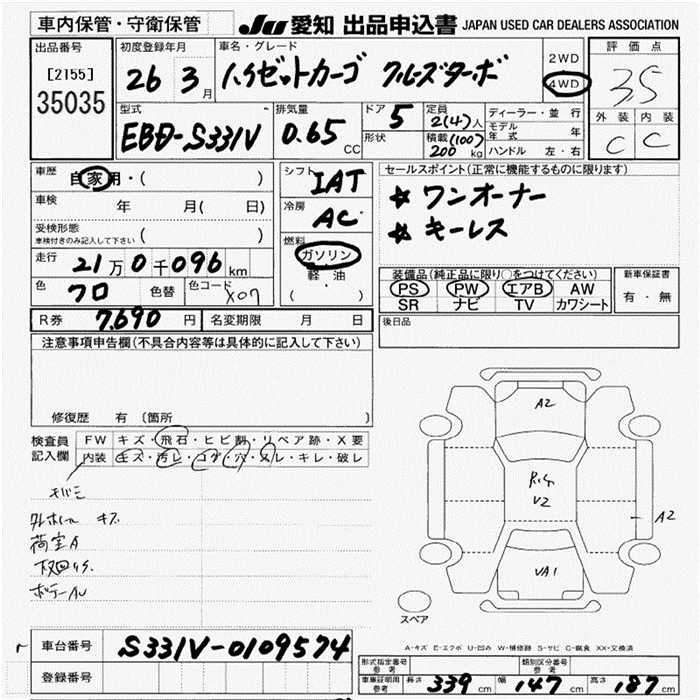 車内保管・守衛保管
JU 愛知 出品申込書 JAPAN USED CAR DEALERS ASSOCIATION
出品番号
[2155]
35035
初度登録年月
26 3月
車名・グレード
ハイゼットカーゴ クルーズターボ
2WD
4WD
評価点
3.5
外装 内装
C C
型式
EBD-S331V
排気量
0.65 CC
ドア 5
形状
定員 2(4)人
積載 (100) 200 kg
ディーラー・並行
モデル年式 年
ハンドル 左・右
車歴 自家用・( )
車検 年 月( 日)
受検形態
車検付きのみ記入して下さい ( )
走行 21万0千096km
色 クロ 色替 色コード X07
シフト IAT
冷房 AC
燃料
ガソリン
軽・油
( ・ )
セールスポイント(正常に機能するものに限ります)
☆ ワンオーナー
☆ キーレス
装備品(純正品に限り○をつけてください)
PS PW エアB AW
SR ナビ TV カワシート
新車保証書
有・無
R券 7,690円 名変期限 月 日
後日品
注意事項申告欄(不具合内容等は具体的に記入して下さい)
修復歴 有 〔箇所
検査員記入欄
FW キズ・飛石・ヒビ割・リペア跡・X要
内装 キズ・汚レ・コゲ・穴・スレ・キレ・破レ
荷室A
A2
V2
A2
VA1
スペア
A-キズ E-エクボ U-凹み W-補修跡 S-サビ C-腐食 XX-交換済
車台番号 S331V-0109574
登録番号
形式指定番号 参考
類別区分番号 参考
車庫証明用 参考 長さ 339cm 幅 147cm 高さ 187cm